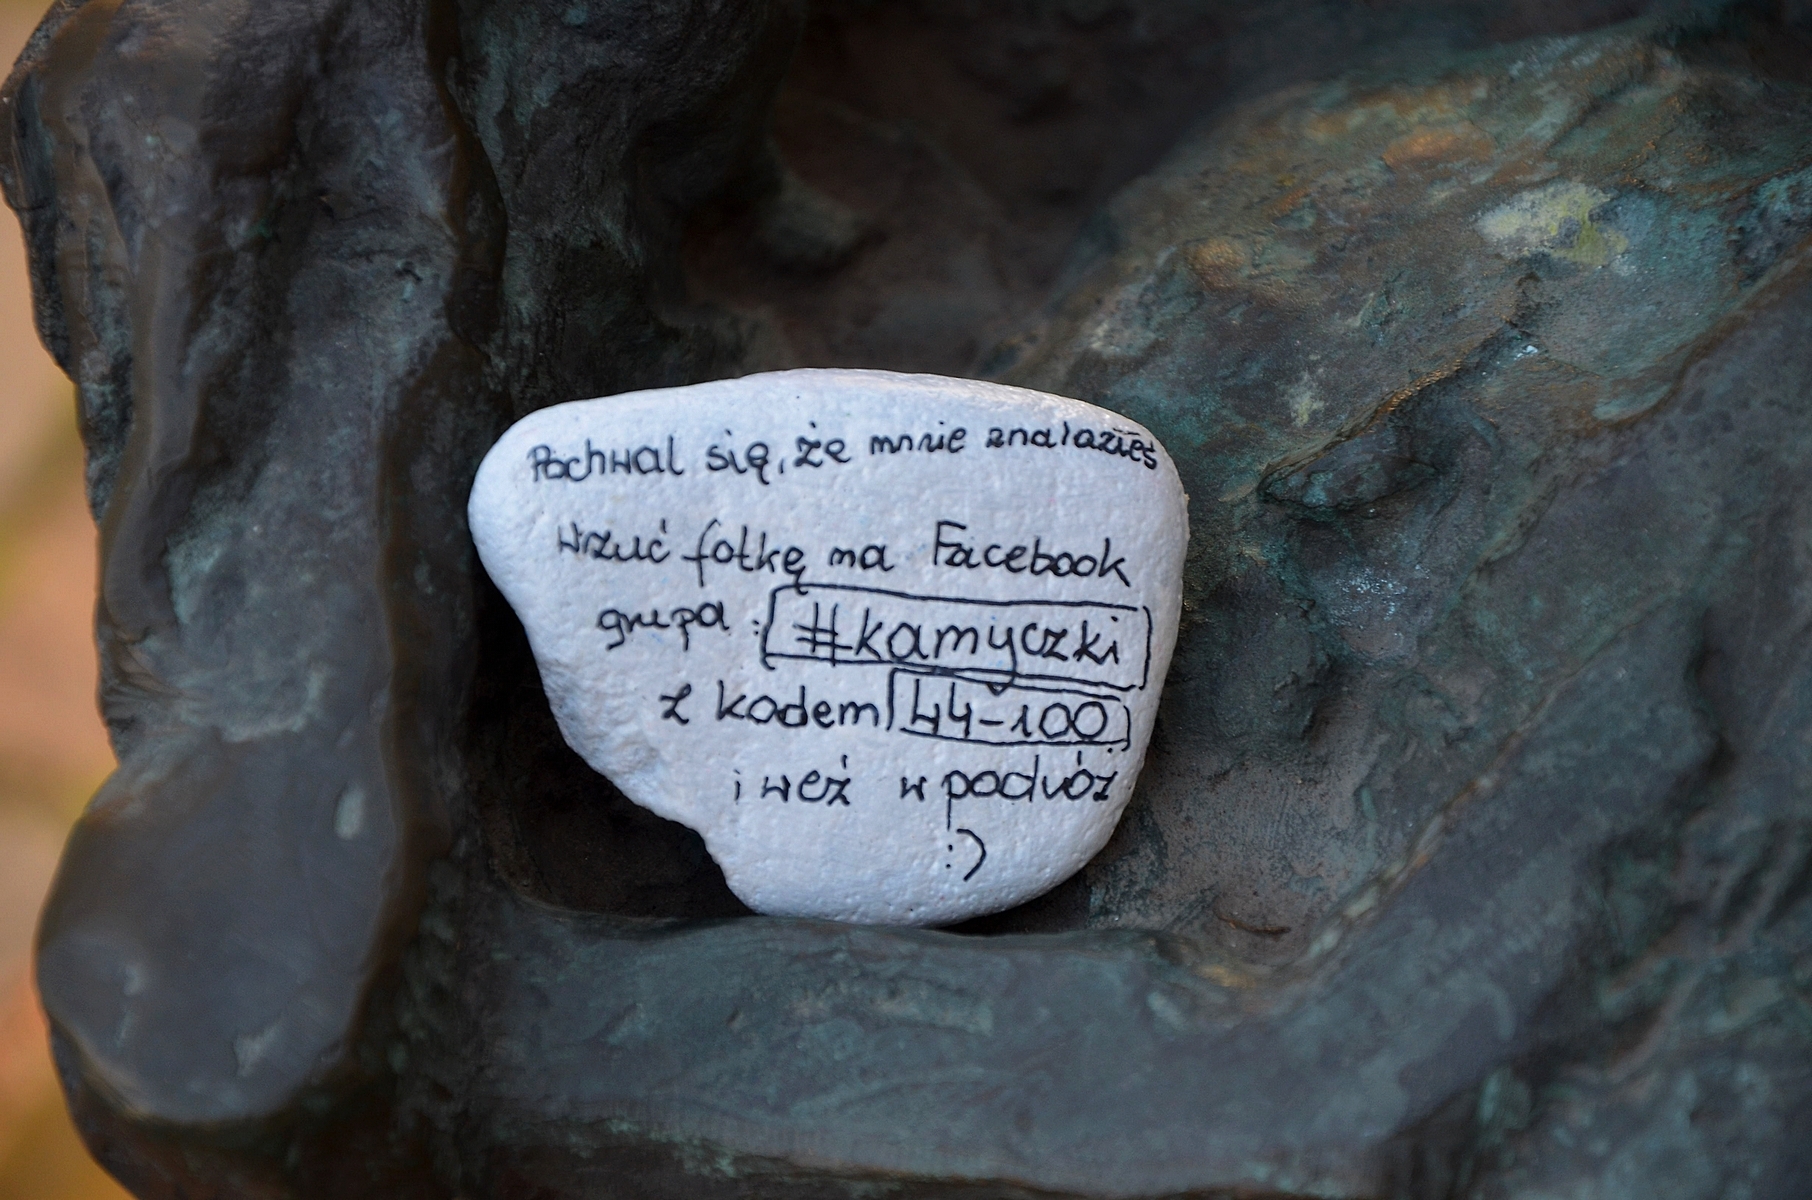 Pochwal się, że mnie znalazłeś
Wrzuć fotkę na Facebook
grupa : #kamyczki
z kodem 44-100
i weź w podróż
:)